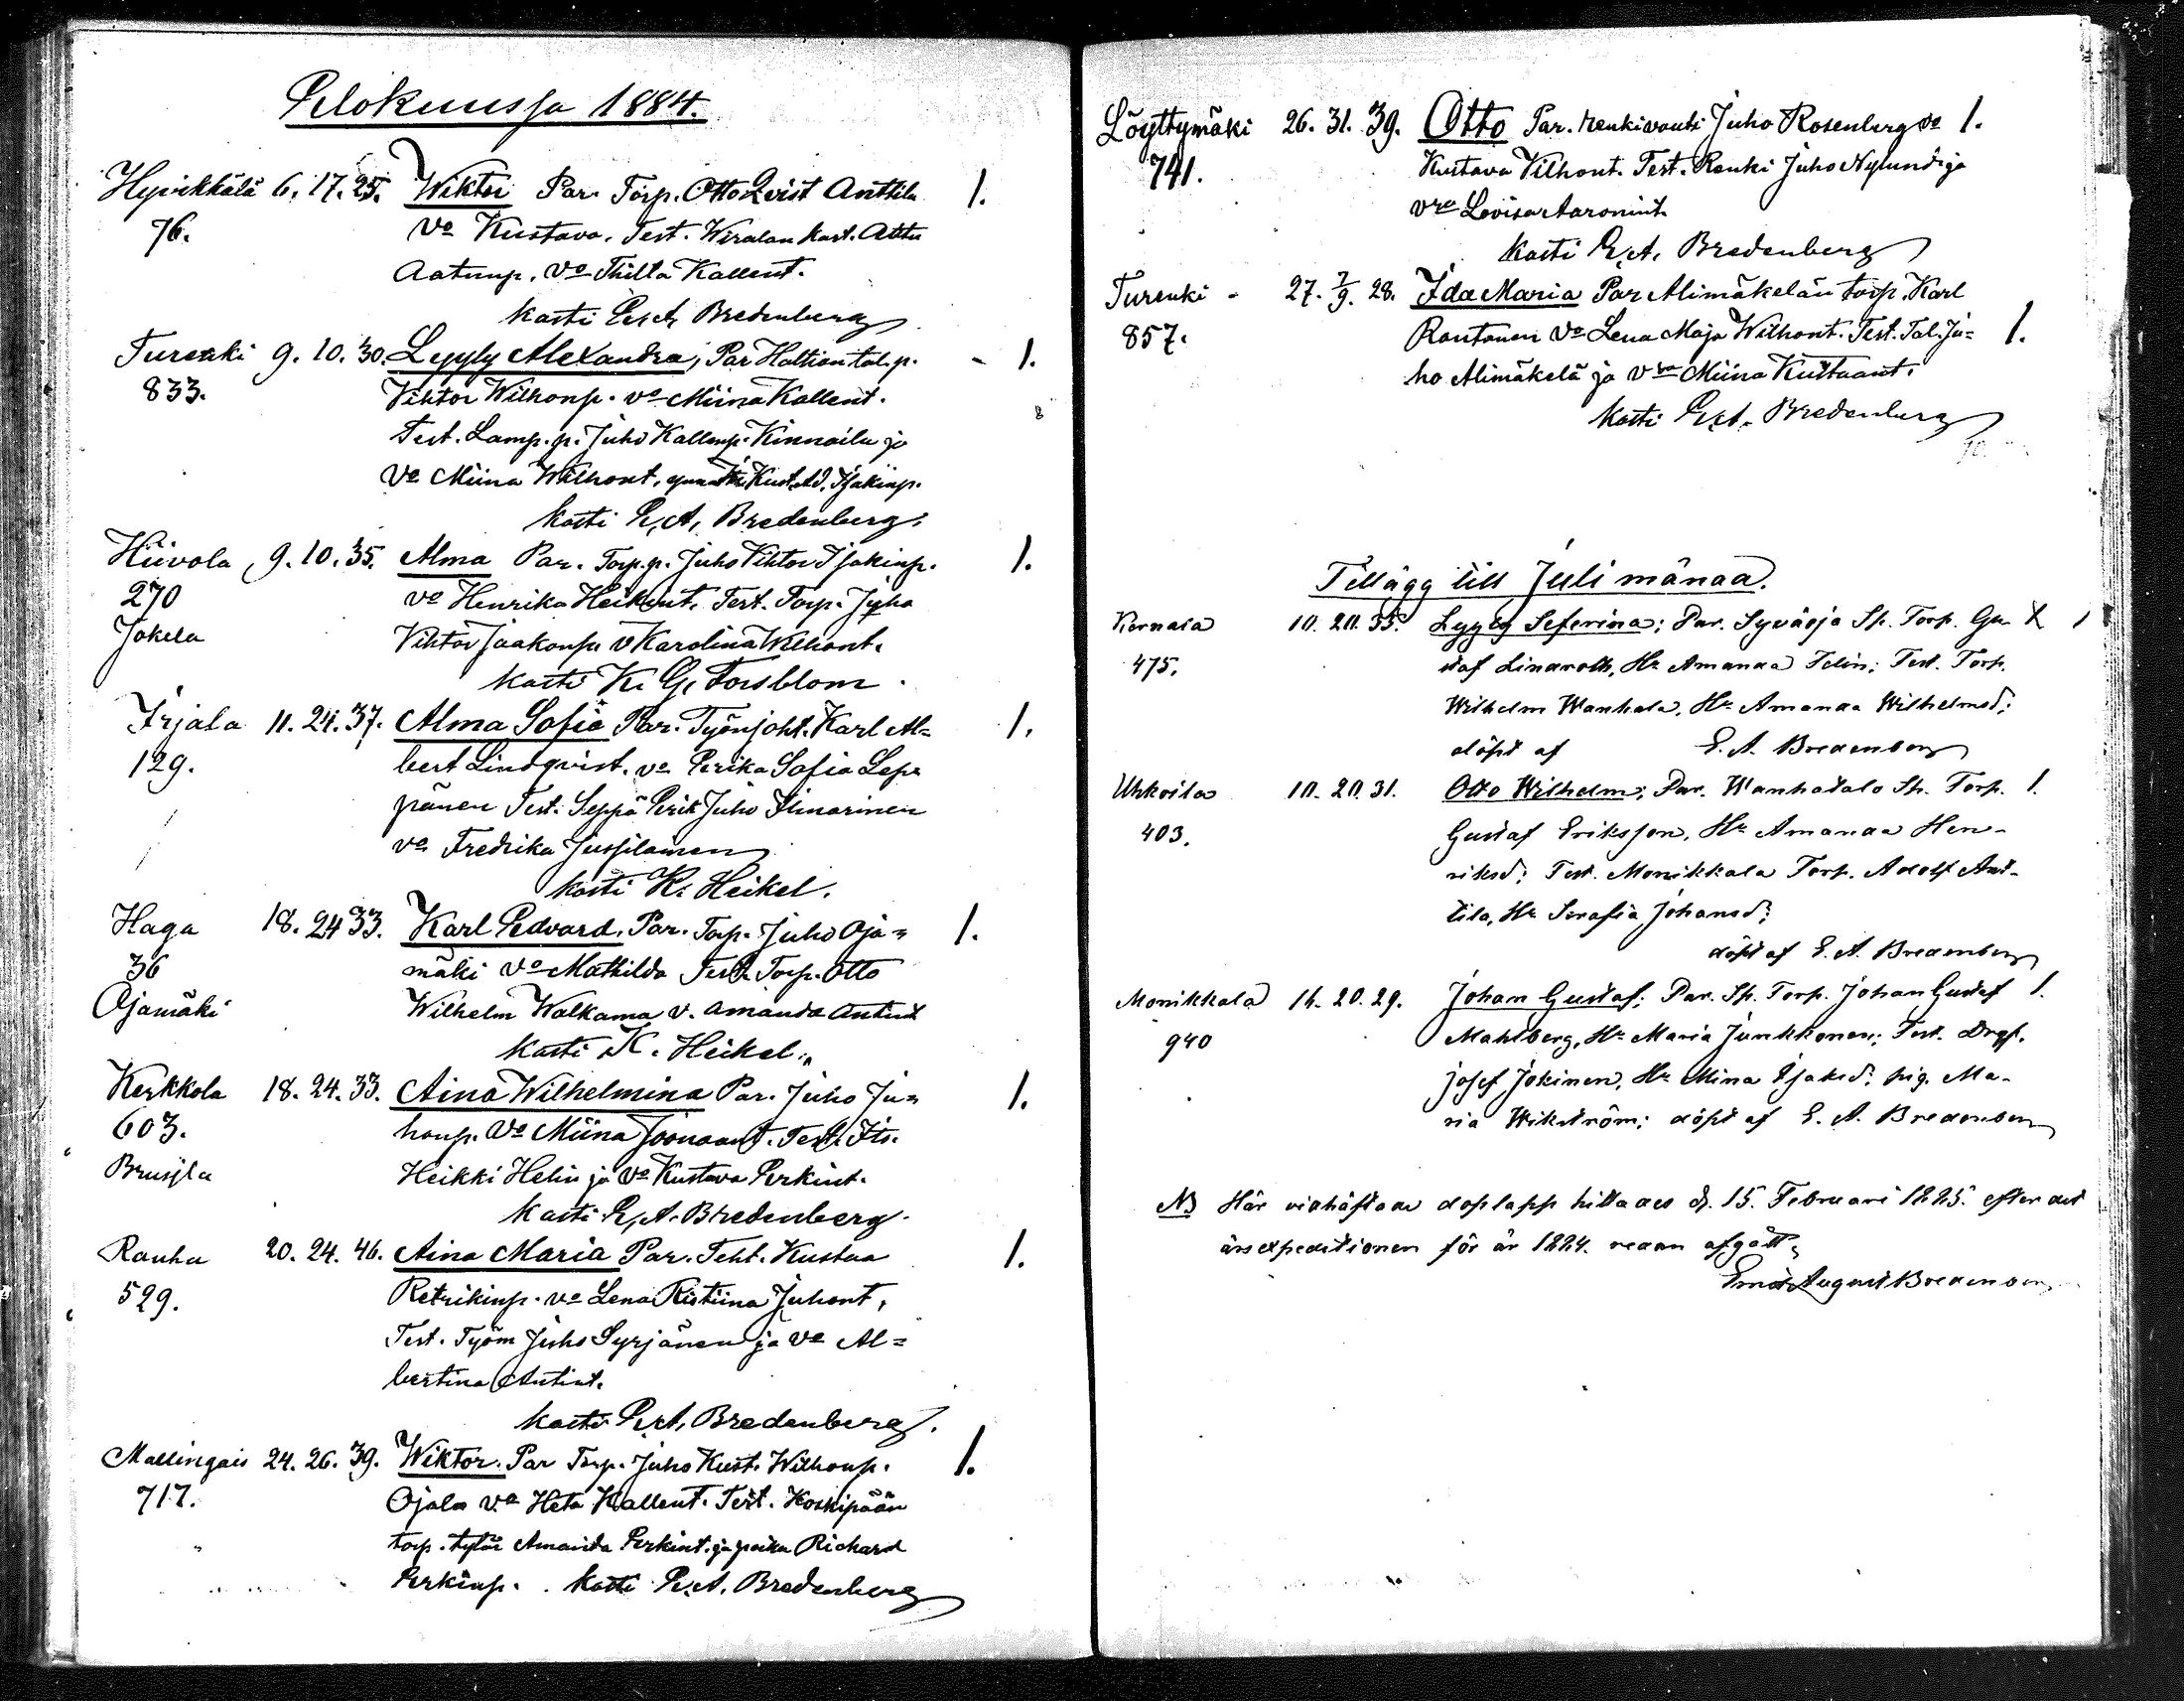 Elokuussa 1884.
Hyvikkälä 6. 17. 25. Wiktor Par. Torp. Otto Qvist Anttila 1.
76. vo Kustava. Test. Wiralan Kart. Attu
Aatunp. vo Thilta Kallent.
kasti E. A. Bredenberg
Turenki 9. 10. 30. Lyyly Alexandra, Par Haltian tal. p. - 1.
833. Viktor Wilhonp. vo Miina Kallent.
Test. Lamp. p. Juho Kallenp. Kinnaila ja
vo Miina Wilhont, Kust. Ad. Isakinp.
kasti E. A. Bredenberg.
Hiivola 9. 10. 35. Alma Par. Torp. p. Juho Viktor Isakinp. 1.
270 vo Henrika Heikint. Test. Torp. Juho
Jokela Viktor Jaakonp. v Karolina Wilhont.
kasti K. G. Forsblom.
Irjala 11. 24. 37. Alma Sofia Par. Työnjoht. Karl Al= 1.
129. bert Lindqvist. vo Eerika Sofia Lep=
pänen Test. Seppä Eerik Juho Ilmarinen
vo Fredrika Jussilainen
kasti K. Heikel.
Haga 18. 24 33. Karl Edvard. Par. Torp. Juho Oja= 1.
36 mäki vo Mathilda Test. Torp. Otto
Ojamäki Wilhelm Walkama v. Amanda Antint
kasti K. Heikel.
Kerkkola 18. 24. 33. Aina Wilhelmina Par. Juho Ju= 1.
603. honp. vo Miina Joonaant. Test. Its.
Brusila Heikki Helin ja vo Kustava Eerkint.
kasti E. A. Bredenberg.
Rauhu 20. 24. 46. Aina Maria Par. Teht. Kustaa 1.
529. Retrikinp. vo Lena Ristiina Juhont,
Test. Työm Juho Syrjänen ja vo Al=
bertina Antint.
kasti E. A. Bredenberg.
Mallingais 24. 26. 39. Wiktor. Par Torp. Juho Kust. Wilhonp. 1.
717. Ojala vo Heta Kallent. Test. Koskipään
torp. tytär Amanda Eerkint. ja poika Richard
Eerkinp. kasti E. A. Bredenberg
Löyttymäki 26. 31. 39. Otto Par. Renkivouti Juho Rosenberg vo 1.
741. Kustava Vilhont. Test. Renki Juho Nylund ja
vro Lovisa Aaronint.
kasti E. A. Bredenberg
Turenki - 27. 7/9. 28. Ida Maria Par Alimäkelän torp. Karl
857. Rantanen vo Lena Maja Wilhont. Test. Tal. Ju= 1.
ho Alimäkelä ja vmo Miina Kustaant.
kasti E. A. Bredenberg
Tillägg till Juli månad.
Kernala 10. 20. 35. Lyyly Seferina; Par. Syväoja Sp. Torp. Gu- X 1
475. staf Lindroth, Hu Amanda Felin; Test. Torp.
Wilhelm Wanhala, Hu Amanda Wilhelmsd;
döpt af E. A. Bredenberg
Uhkoila 10. 20. 31. Otto Wilhelm; Par. Wanhatalo Sp. Torp. 1.
403. Gustaf Eriksson, Hu Amanda Hen-
riksd; Test. Monikkala Torp. Adolf Ant-
tila, Hu Serafia Johansd;
döpt af E. A. Bredenberg
Monikkala 16. 20. 29. Johan Gustaf; Par. Sp. Torp. Johan Gustaf 1.
940 Mahlberg, Hu Maria Junkkonen; Test. Drgs.
Josef Jokinen, Hu Mina Isaksd; pig. Ma-
ria Wikström; döpt af E. A. Bredenberg
NB Här vidhäftade doplapp hittades d. 15. Februari 1885. efter det
årsexpeditionen för år 1884. redan afgått.
Ernst August Bredenberg